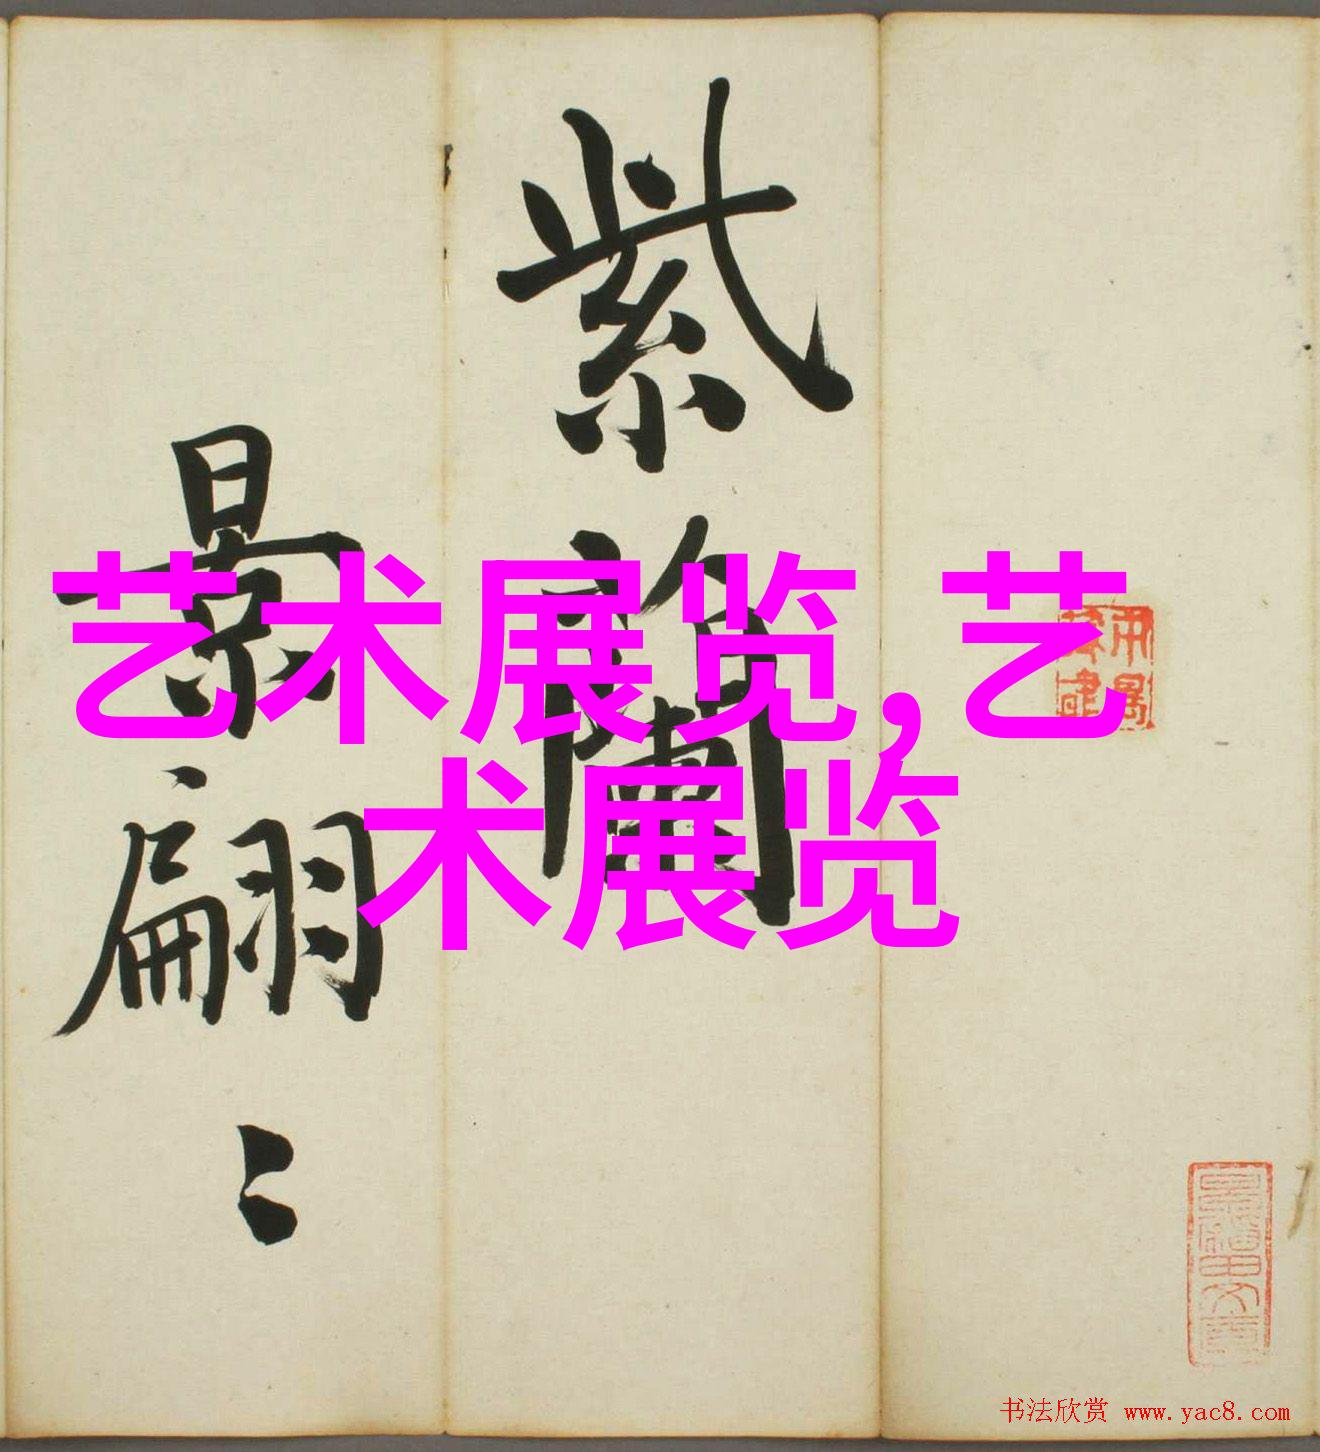 紫蘭
景翩〻
艺术展览,艺
术展览
书法欣赏 www.yac8.com